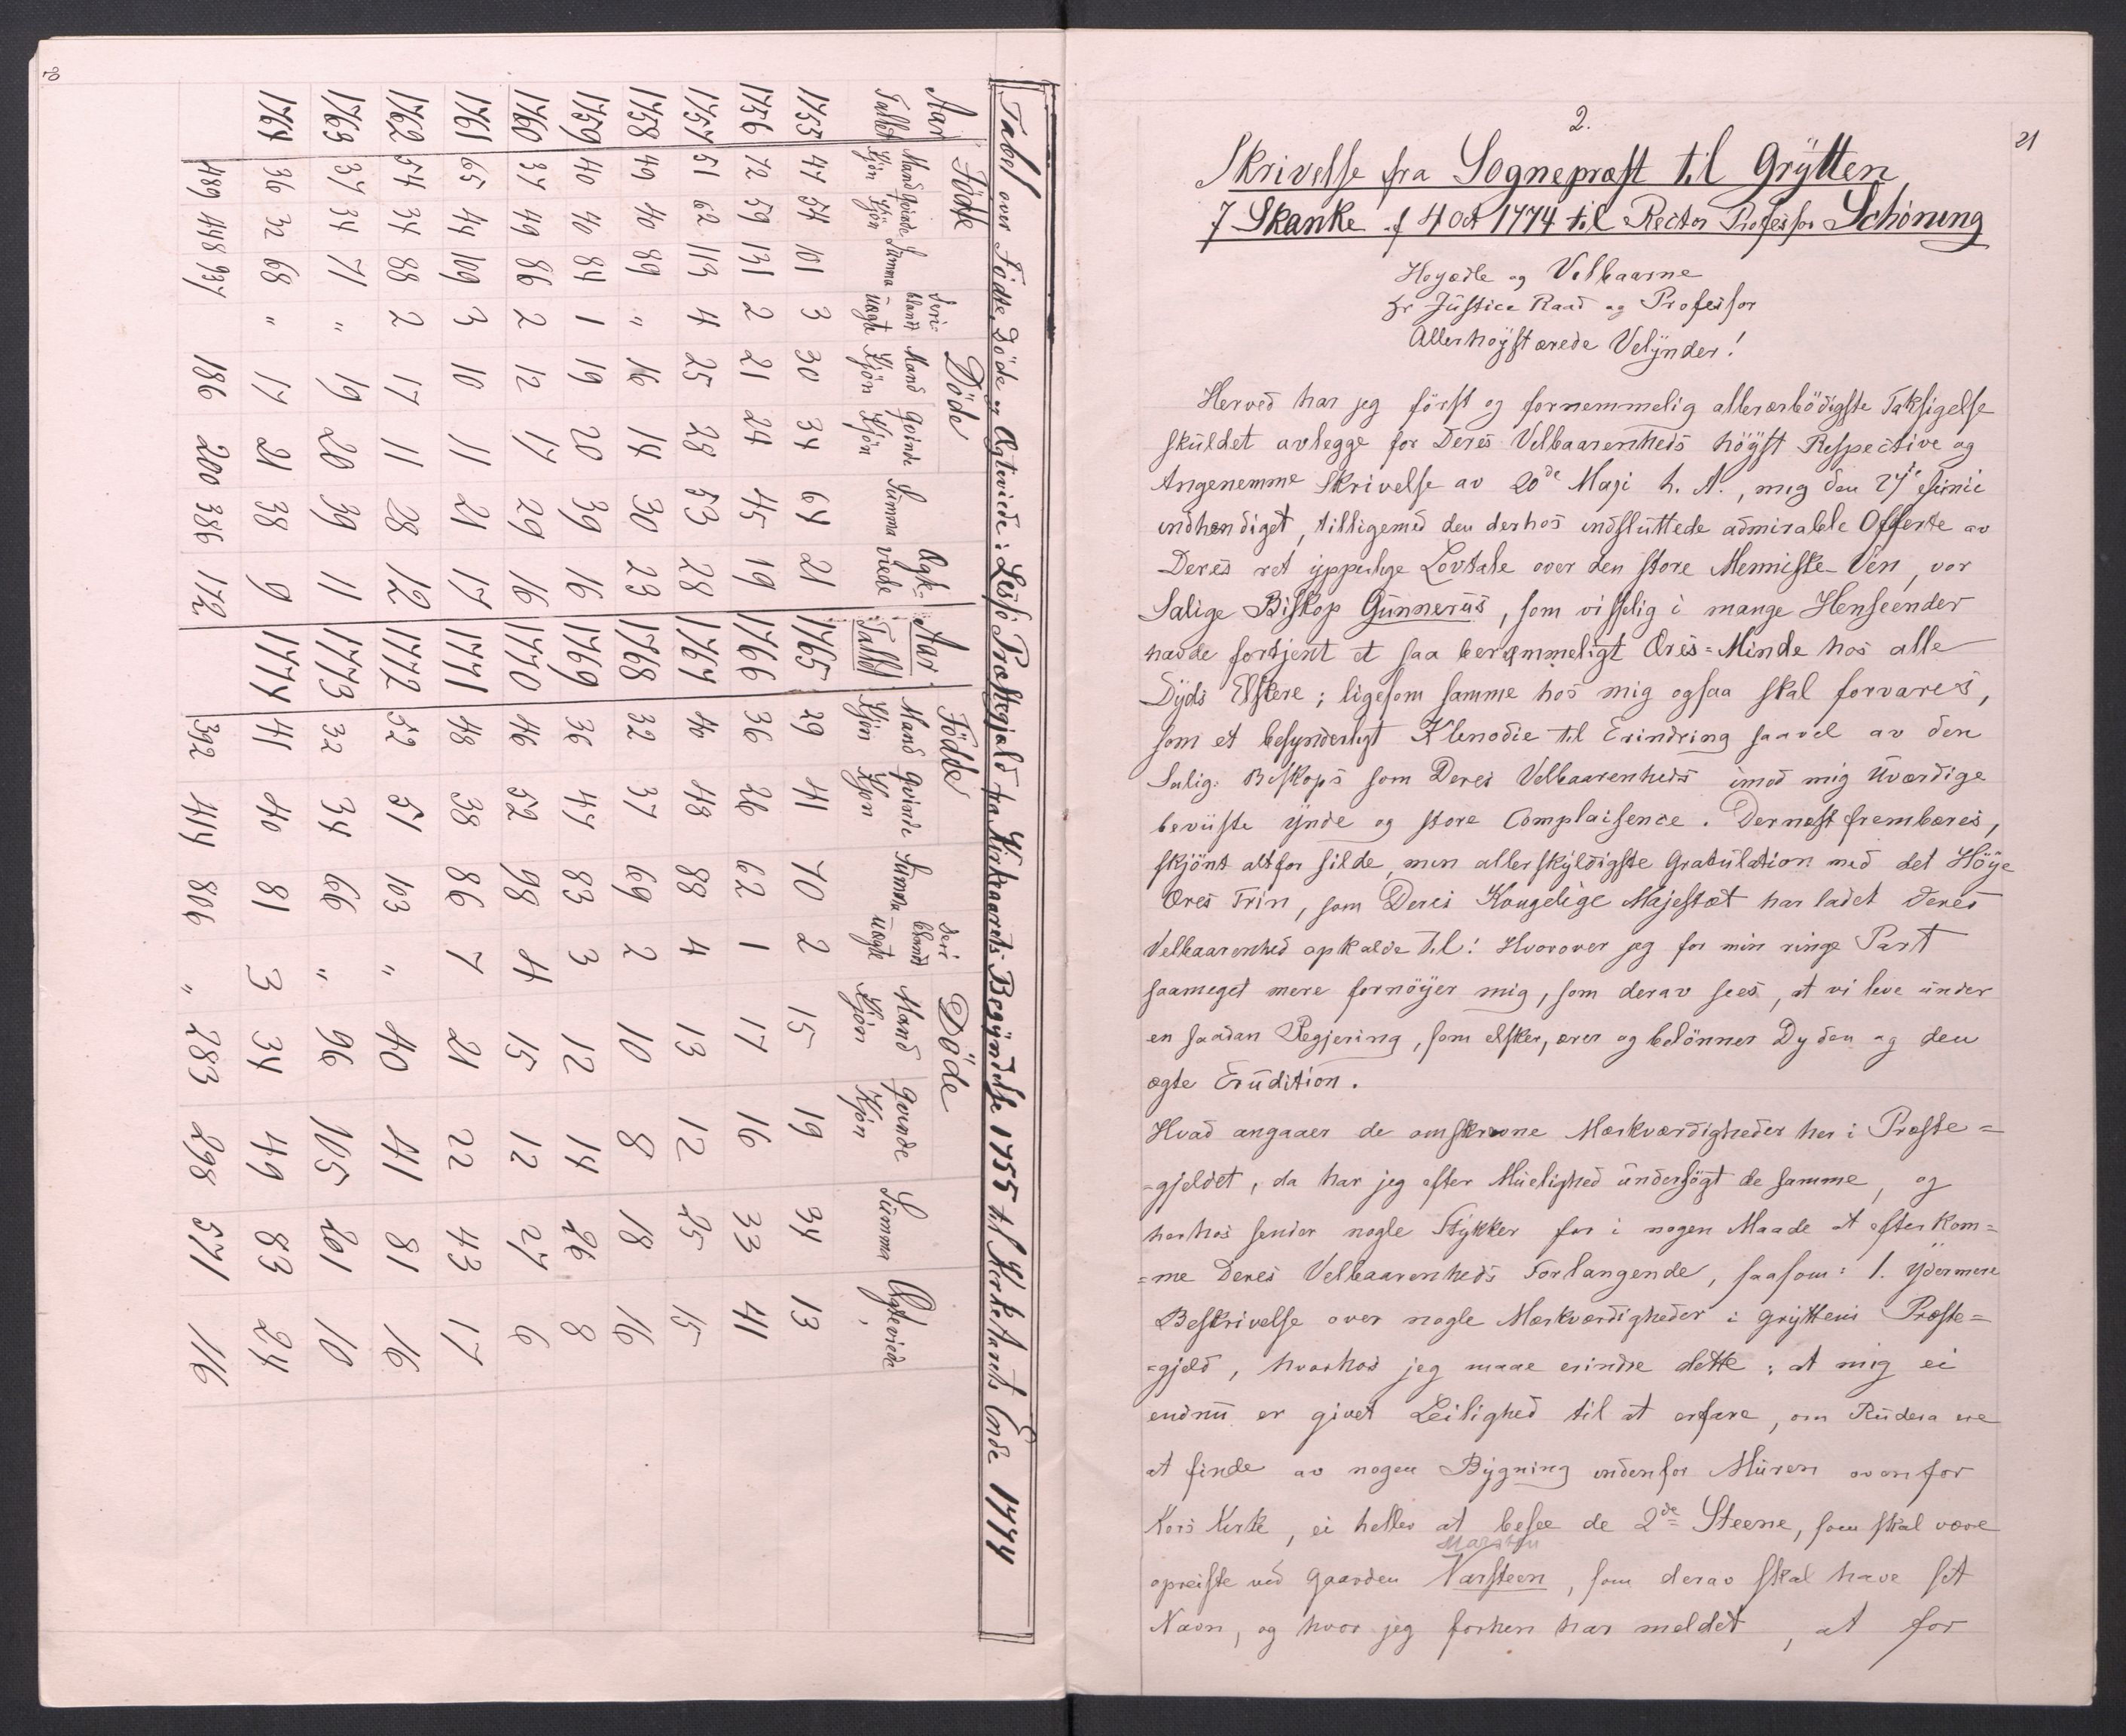 Tabel over Födte, Döde og Agteviede i Lesjö Præstegjæld fra Kirkeaarets Begyndelse 1755 til Kirke Aarets Ende 1774
Aar Tallet | Födte: Mand Kjön | Qvinde Kjön | Summa | deri- blandt Uægte | Döde: Mand Kjön | Qvinde Kjön | Summa | Ægte- viede
1755 47 54 101 3 30 34 64 21
1756 72 59 131 2 21 24 45 19
1757 51 62 113 4 25 28 53 28
1758 49 40 89 " 16 14 30 23
1759 40 40 84 1 19 20 39 16
1760 37 49 86 2 12 17 29 16
1761 65 44 109 3 10 11 21 17
1762 54 34 88 2 17 11 28 12
1763 37 34 71 " 19 20 39 11
1764 36 32 68 " 17 21 38 9
489 448 937 186 200 386 172
Aar Tallet | Födte: Mand Kjön | Qvinde Kjön | Summa | deri blandt Uægte | Döde: Mand Kjön | Qvinde Kjön | Summa | Ægteviede
1765 29 41 70 2 15 19 34 13
1766 36 26 62 1 17 16 33 41
1767 40 48 88 4 13 12 25 15
1768 32 37 69 2 10 8 18 16
1769 36 47 83 3 12 14 26 8
1770 46 52 98 4 15 12 27 6
1771 48 38 86 7 21 22 43 17
1772 52 51 103 " 40 41 81 16
1773 32 34 66 " 96 105 201 10
1774 41 40 81 3 34 49 83 24
392 414 806 " 283 298 571 116
21
2.
Skrivelse fra Sogneprest til Grÿtten,
J Skanke af 4 Oct 1774 til Rector Professor Schöning
Høyædle og Velbaarne
Hr Justice Raad og Professor
Allerhöÿstærede Velÿnder!
Herved har jeg först og fornemmelig allerærbödigste Taksigelse
skuldet avlegge for Deres Velbaarenheds höÿst Respective og
Angenemme Skrivelse av 20de Maji h. A., mig den 27de Junii
indhendiget, tilligemed den derhos indsluttede admirable Offerte av
Deres ret ÿpperlige Lovtale over den store Menniske-Ven, vor
Salige Biskop Gunnerus, som visselig i mange Henseender
havde fortjent et saa berømmeligt Æres=Minde hos alle
Dÿds Elskere; ligesom samme hos mig ogsaa skal forvares,
som et besynderligt Klenodie til Erindring saavel av den
Salig: Biskops som Deres Velbaarenheds imod mig Uværdige
beviiste ÿnde og store Complaisence. Dernæst frembæres,
skjönt altfor silde, min allerskÿldigste Gratulation med det Höÿe
Æres Trin, som Deres Kongelige Majestæt har ladet Deres
Velbaarenhed opkalde til: Hvorover jeg for min ringe Part
saameget mere fornöÿer mig, som derav sees, at vi leve under
en saadan Regjering, som elsker, ærer og belönner Dyden og den
ægte Erudition.
Hvad angaaer de omskrevne Mærkværdigheder her i Præste=
=gjeldet, da har jeg efter Muelighed undersögt de samme, og
herhos sender nogle Stÿkker for i nogen Maade at efterkom=
=me Deres Velbaarenheds Forlangende, saasom: 1. ÿdermere
Beskrivelse over nogle Mærkværdigheder i Grÿttens Præste=
=gjeld, hvorhos jeg maae erindre dette: at mig ei
endnu er givet Leilighed til at erfare, om Rudera ere
at finde av nogen Bÿgning indenfor Muren ovenfor
Kors Kirke, ei heller at besee de 2de Steene, som skal være
opreiste ved Gaarden Varsteen, som derav skal have sit
Navn, og hvor jeg forhen har meldet, at for